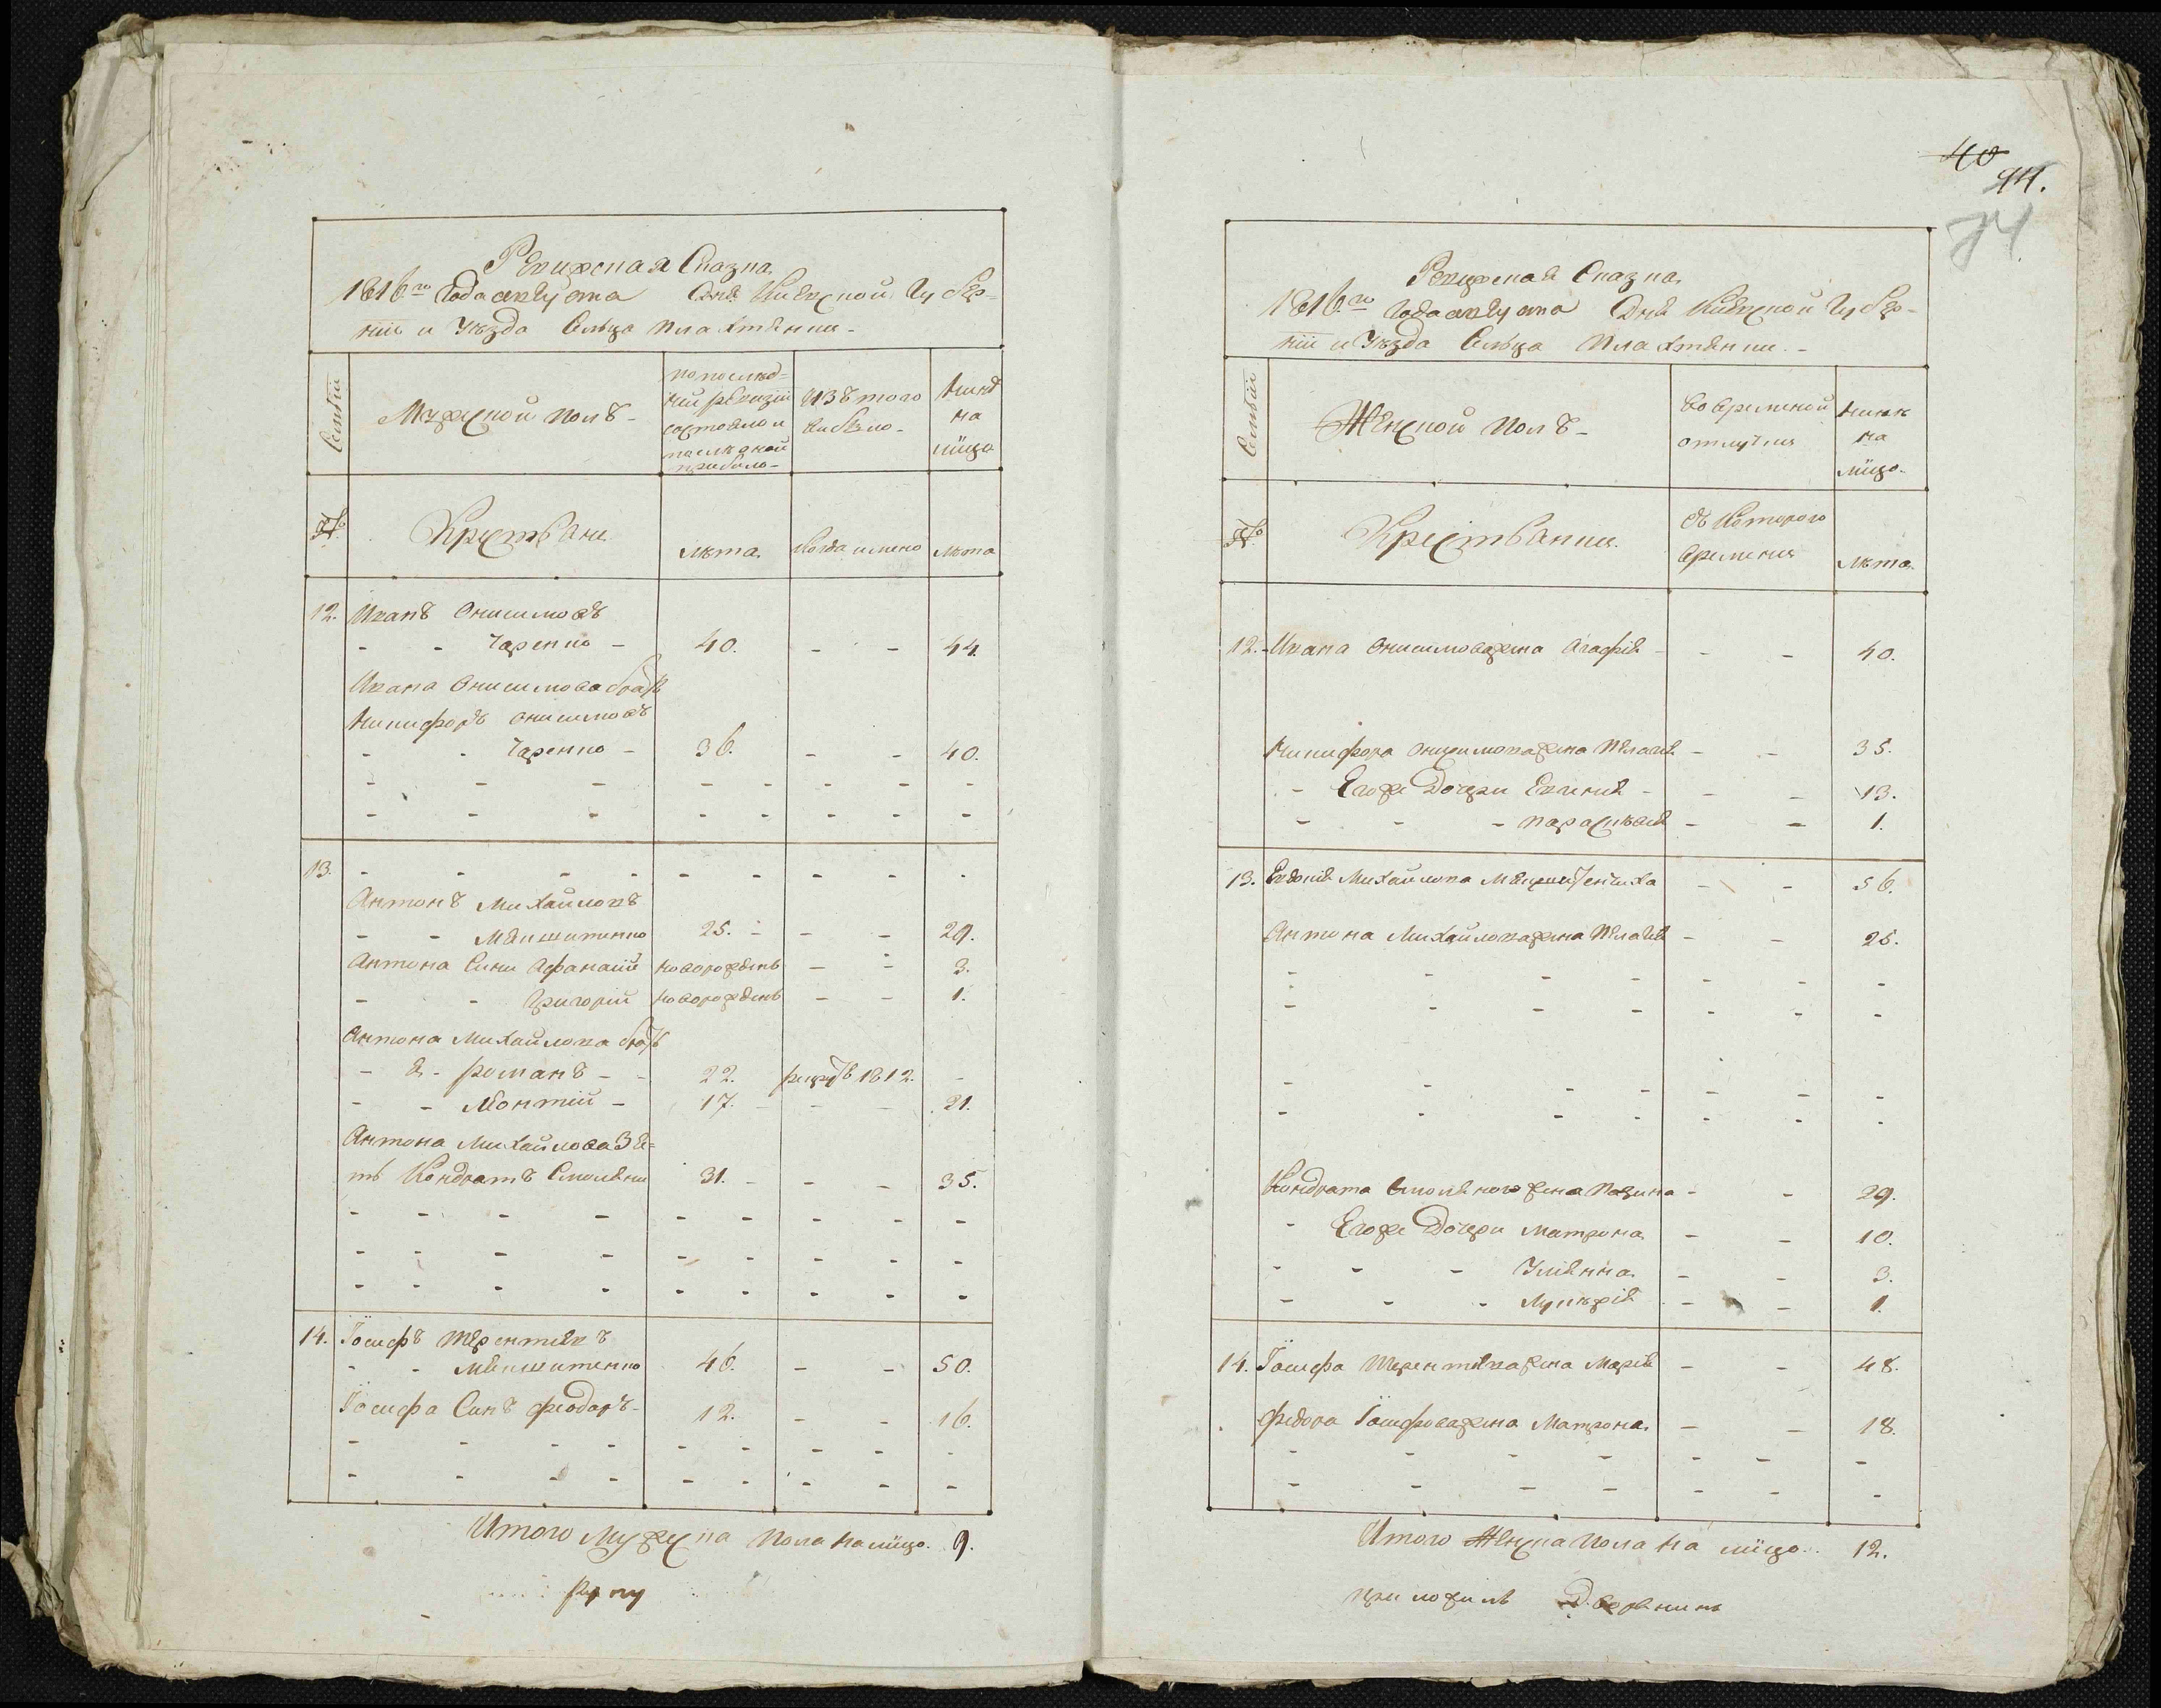 Ревизская Сказка
1816го года августа Дня Киевской Губер-
ніи и Уѣзда Сельца Плахтянки.-
Семьи
Мужеской полъ-
по послѣд-
ней ревизіи
состояло и
послѣ оной
прибыло-
Изъ того
выбыло-
Нинѣ
на
лицо
№
Крестьяне
лѣта.
когда имено
лѣта
12. Иванъ Онисимовъ
- - Царенко - 40. - - 44.
Ивана Онисимова братъ
Никифоръ Онисимовъ
- - Царенко - 36. - - 40.
13.
Антонъ Михайловъ
- - 25. - - - 29.
Антона Сини Афанасій новорожденъ - - 3.
- - Григорій новорожденъ - - 1.
Антона Михайлова братъ
- 2й- Романъ - - 22. рекрутъ 1812. -
- - Леонтій - 17. - - - 21.
Антона Михайлова Зя-
ть Кондратъ Смоляни 31. - - - 35.
14. Іосифъ Терентіевъ
- - 46. - - 50.
Іосифа Синъ Феодоръ - 12. - - 16.
Итого Мужеска пола на лицо. 9.
руку
40
44.
74
Ревизская Сказка.
1816го года августа Дня Киевской Губер-
ніи и Уѣзда Сельца Плахтянки.-
Семьи
Женской Полъ-
Во временной
отлучки
Нинѣ
на
лицо.
№
Крестьянки.
Съ Которого
времени
лѣта.
12.- Ивана Онисимова жена Агафія - - - 40.
Никифора Онисимова жена Пелагія - - 35.
- Егоже Дочери Евгенія - - - 13.
- - - Параскевія - - 1.
13. Евдокія Михайлова - - 56.
Антона Михайлова жена Пелагія - - 25.
Кондрата Смоляного жена - - 29.
- Егоже Дочери Матрона - - 10.
- - - Уліянна. - - 3.
- - - Лукерія - - 1.
14. Іосифа Терентіева жена Марія - - 48.
Федора Іосифова жена Матрона. - - 18.
Итого Женска пола на лицо. 12.
приложилъ Дворянинъ